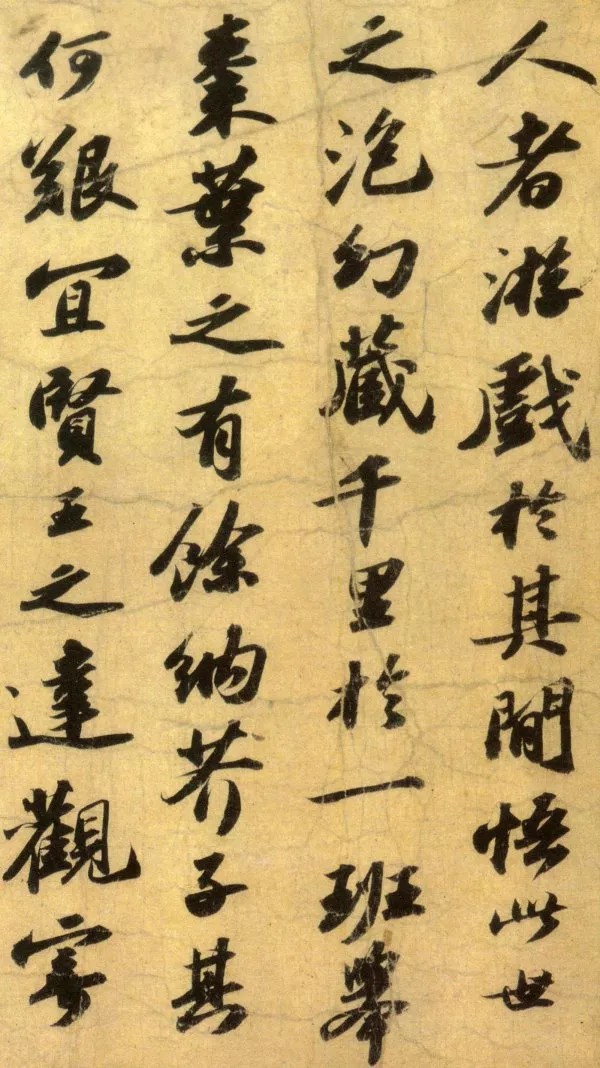 人者游戲於其間悟此世
之泡幻藏千里於一班舉
棗葉之有餘納芥子其
何艱宜賢王之達觀寄